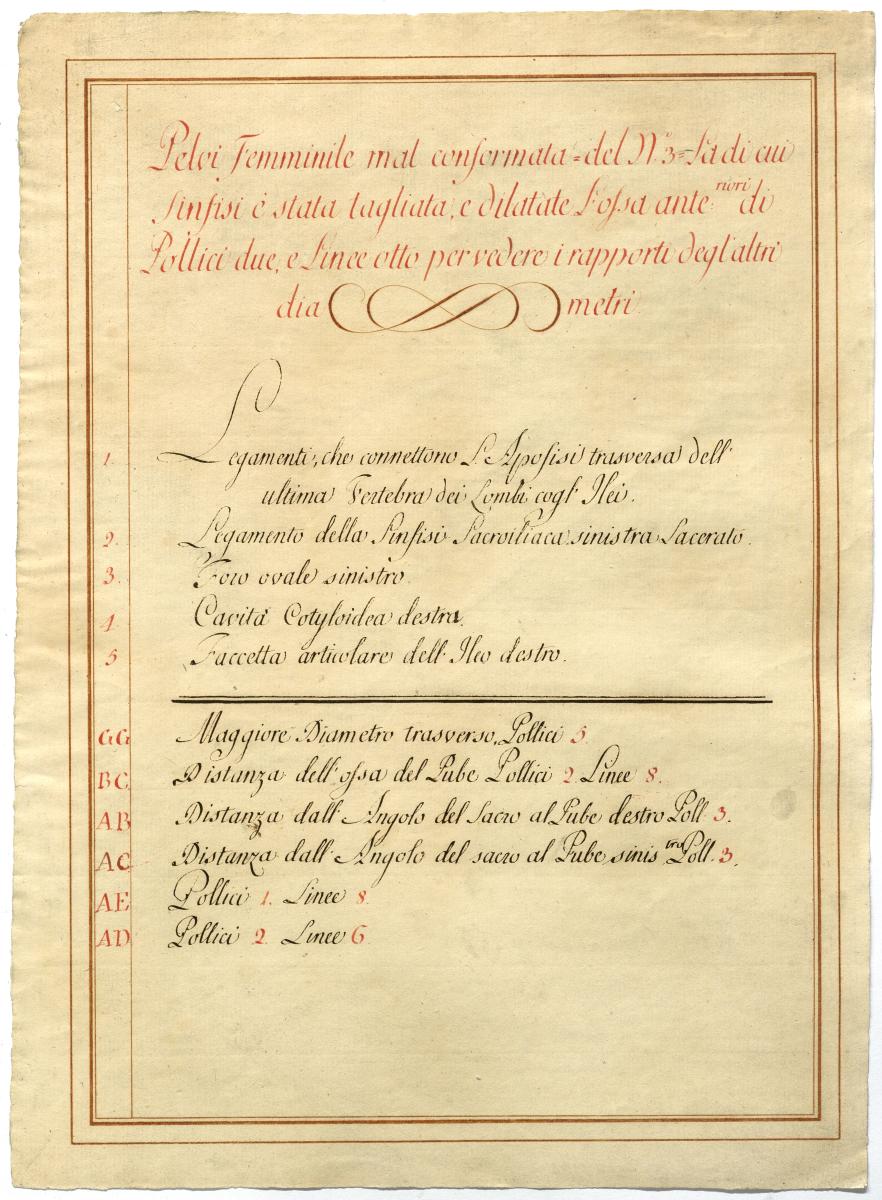 Pelvi Femminile mal conformata = del N.º 3 = La di cui
Sinfisi è stata tagliata, e dilatate L'ossa ante:riori di
Pollici due, e Linee otto per vedere i rapporti degl'altri
dia metri.
1. Legamenti, che connettono L'Apofisi trasversa dell'
ultima Vertebra dei Lombi cogl'Ilei.
2. Legamento della Sinfisi Sacroiliaca sinistra Lacerato.
3. Foro ovale sinistro.
4. Cavità Cotyloidea destra.
5 Faccetta articolare dell'Ileo destro.
GG Maggiore Diametro trasverso, Pollici 5.
BC Distanza dell'ossa del Pube Pollici 2. Linee 8.
AB Distanza dall'Angolo del Sacro al Pube destro Poll. 3.
AC Distanza dall'Angolo del sacro al Pube sinistro Poll. 3.
AE Pollici 1. Linee 8.
AD Pollici 2. Linee 6